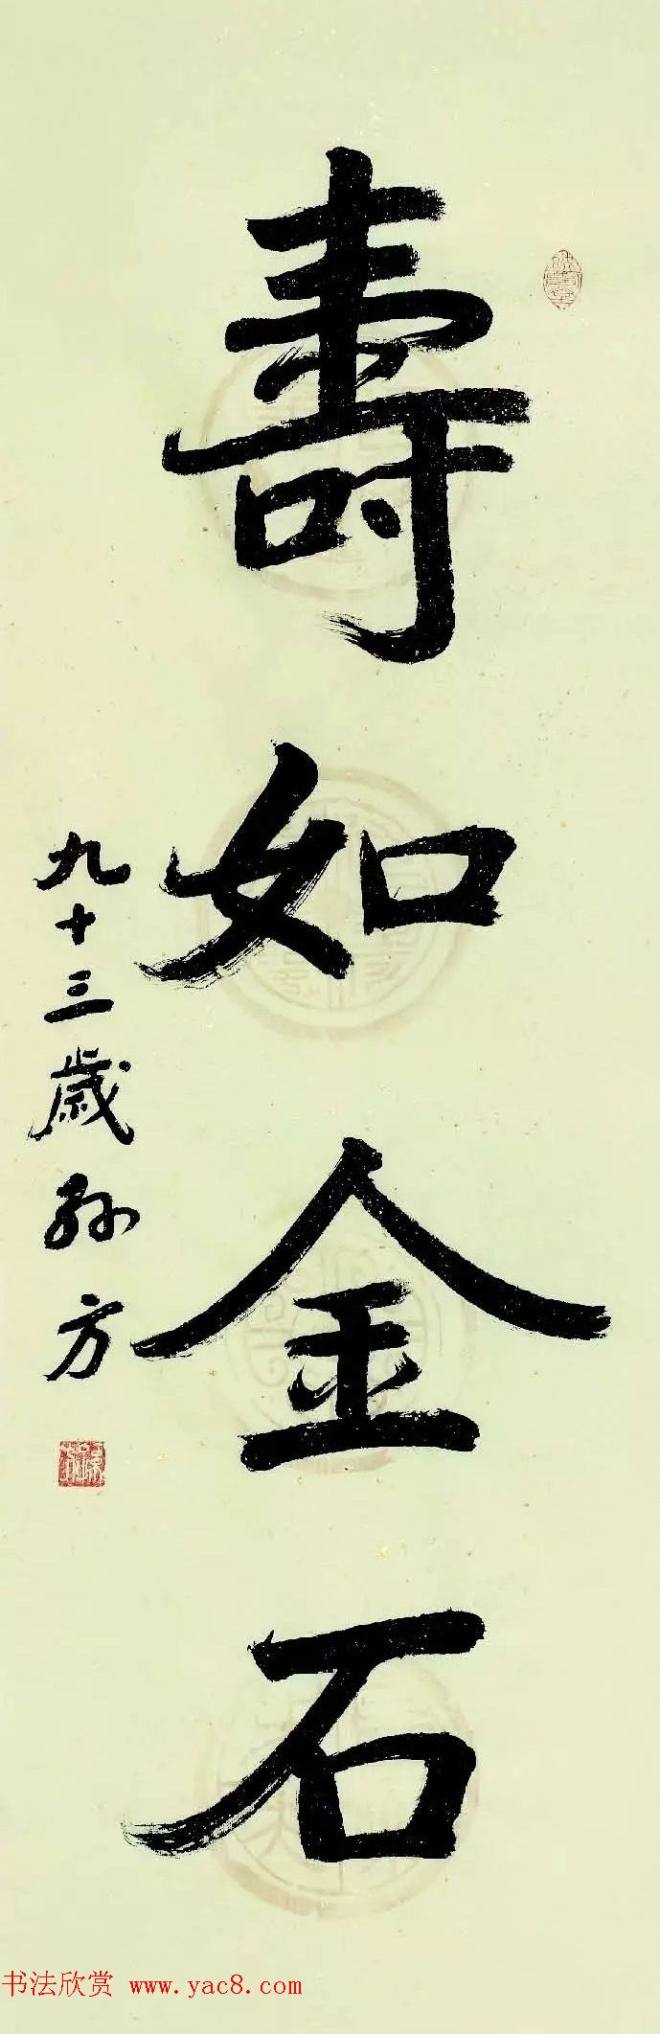 壽如金石
九十三歲孙方
书法欣赏 www.yac8.com